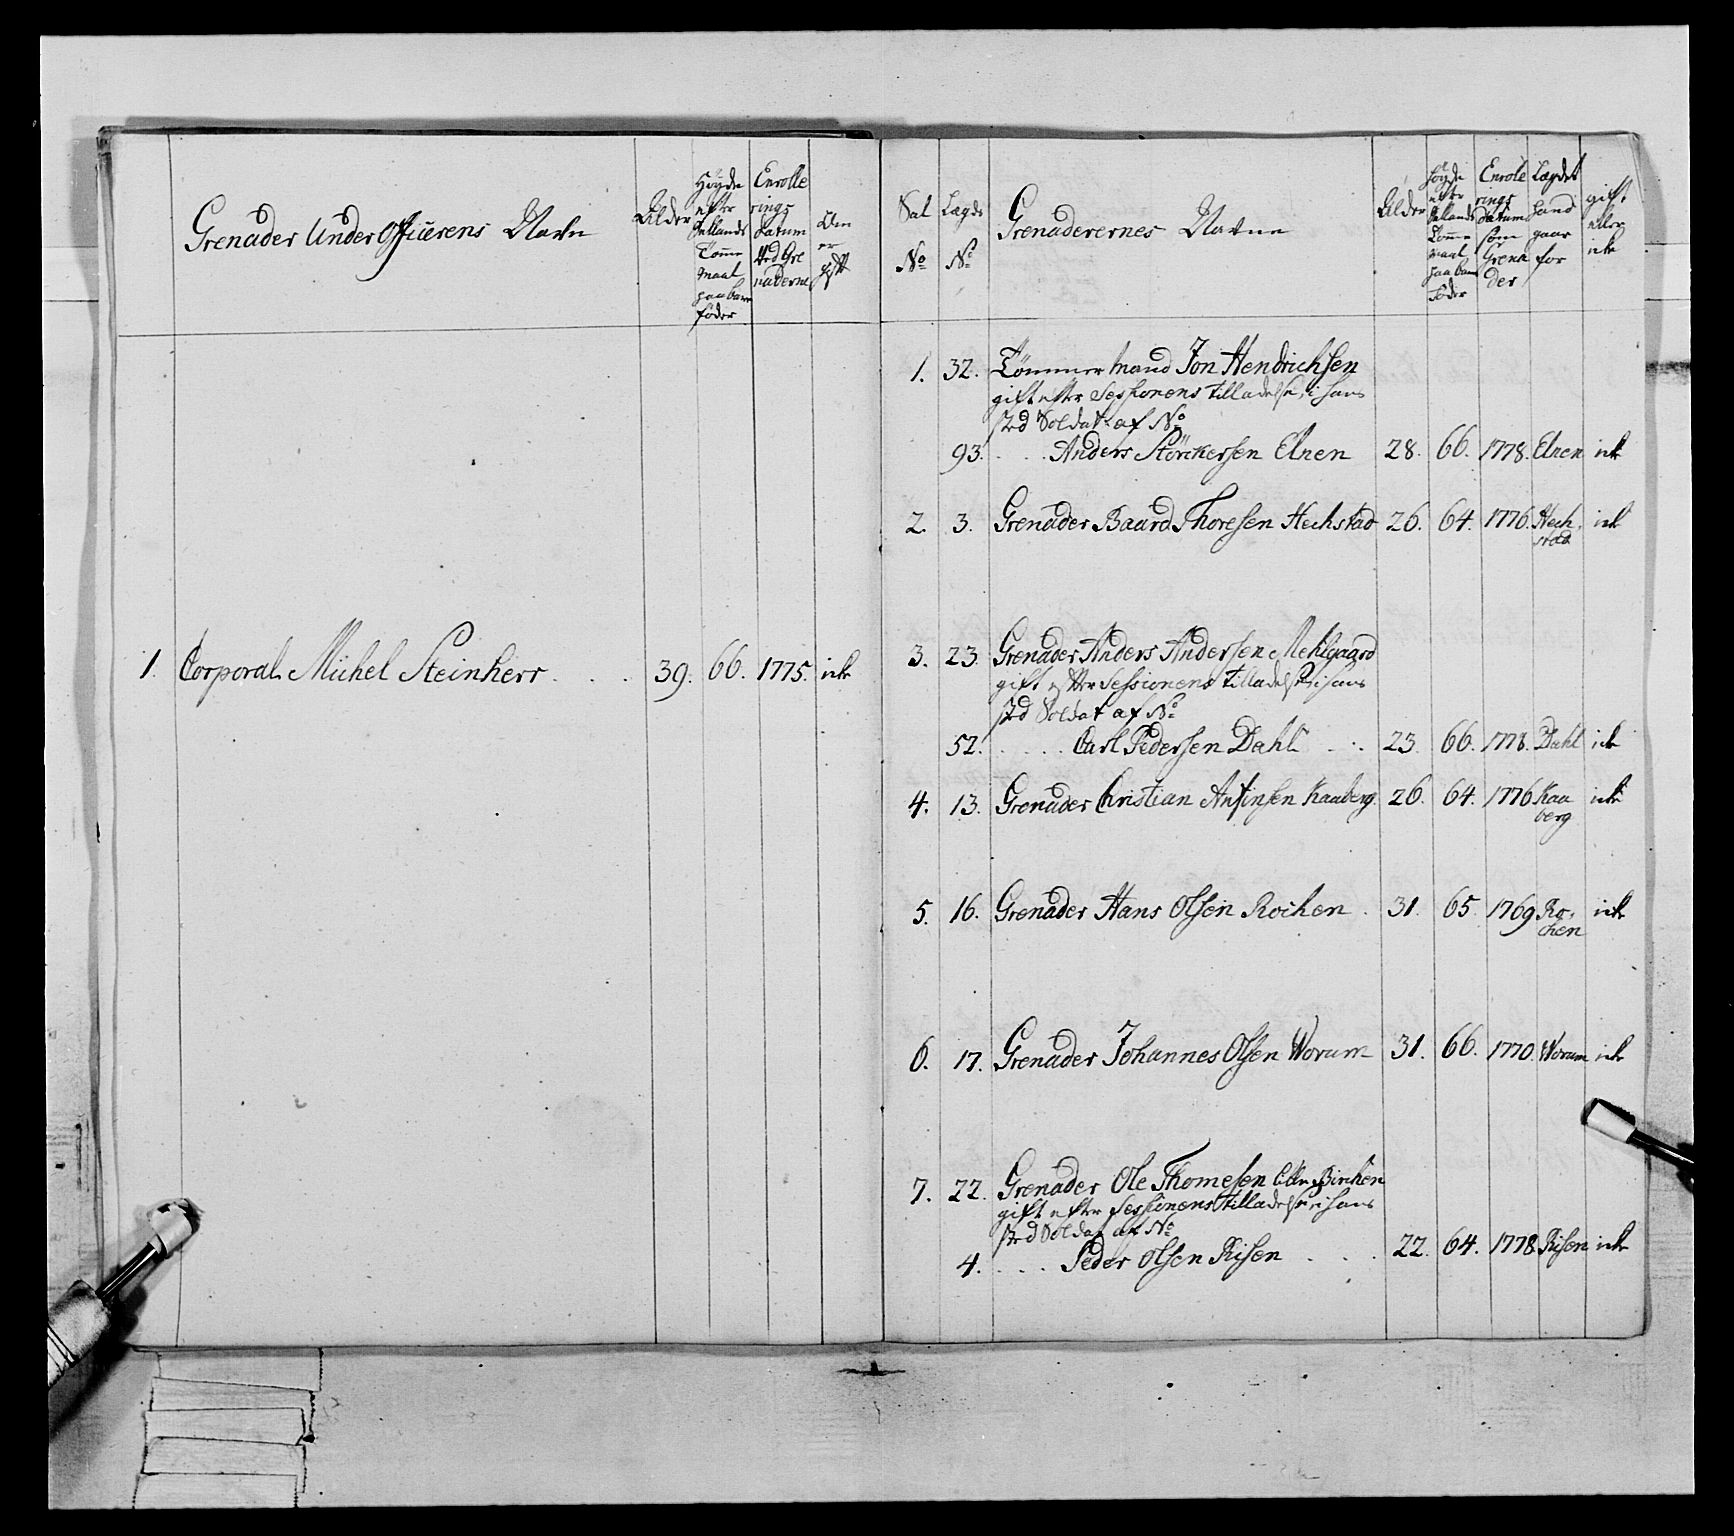 Grenader Under Officerens Nafn
Alder
Høyde
efter
Sællands
Tomme
Maal
paa bare
föder
Enrolle
rings
datum
ved Gre
naderne
Om
er
gift
1. Corporal Michel Steinherr . . . 39. 66. 1775. icke
Sal
No
Lægds
No
Grenaderernes Navne
Alder
høyde
efter
Sællands
Tomme
maal
paa bare
Föder
Enrole
rings
datum
som
Grena
der
Lægdet
hand
gaar
for
gift
eller
icke
1. 32. Tömmermand Jon Hendrichsen
gift efter Sessionens tilladelse, i hans
sted Soldat af No
93. . . . Anders Störckersen Elnen 28. 66. 1778. Elnen icke
2. 3. Grenader Baard Thoresen Hechstad 26. 64. 1776. Hech icke
stad
3. 23. Grenader Anders Andersen Mehlgaard
gift efter Sessionens tilladelse i hans
sted Soldat af No
52. . . . . Carl Pedersen Dahl . . . 23. 66. 1778. Dahl icke
4. 13. Grenader Christian Anfinsen Kaaberg 26. 64. 1776 Kaa icke
berg
5. 16. Grenader Hans Olsen Rochen . 31. 65. 1769 Ro, icke
chen
6. 17. Grenader Johannes Olsen Worum 31. 66. 1770. Worum icke
7. 22. Grenader Ole Thomesen Birchen
gift efter Sessionens tilladelse i hans
sted Soldat af No
4. . . . Peder Olsen Risen . . . 22. 64. 1778 Risen icke